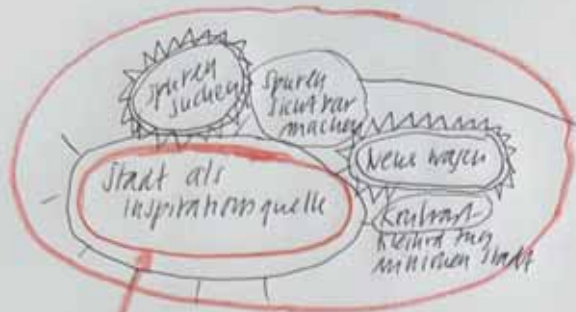 Spuren
suchen
Spuren
sichtbar
machen
Neue wagen
Stadt als
Inspirationsquelle
Kontrast
Stadt